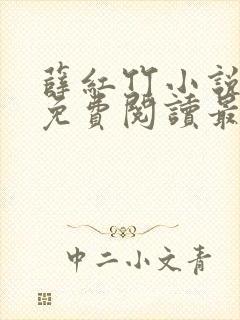 薛紅竹小說
免費閱讀最
中二小文青